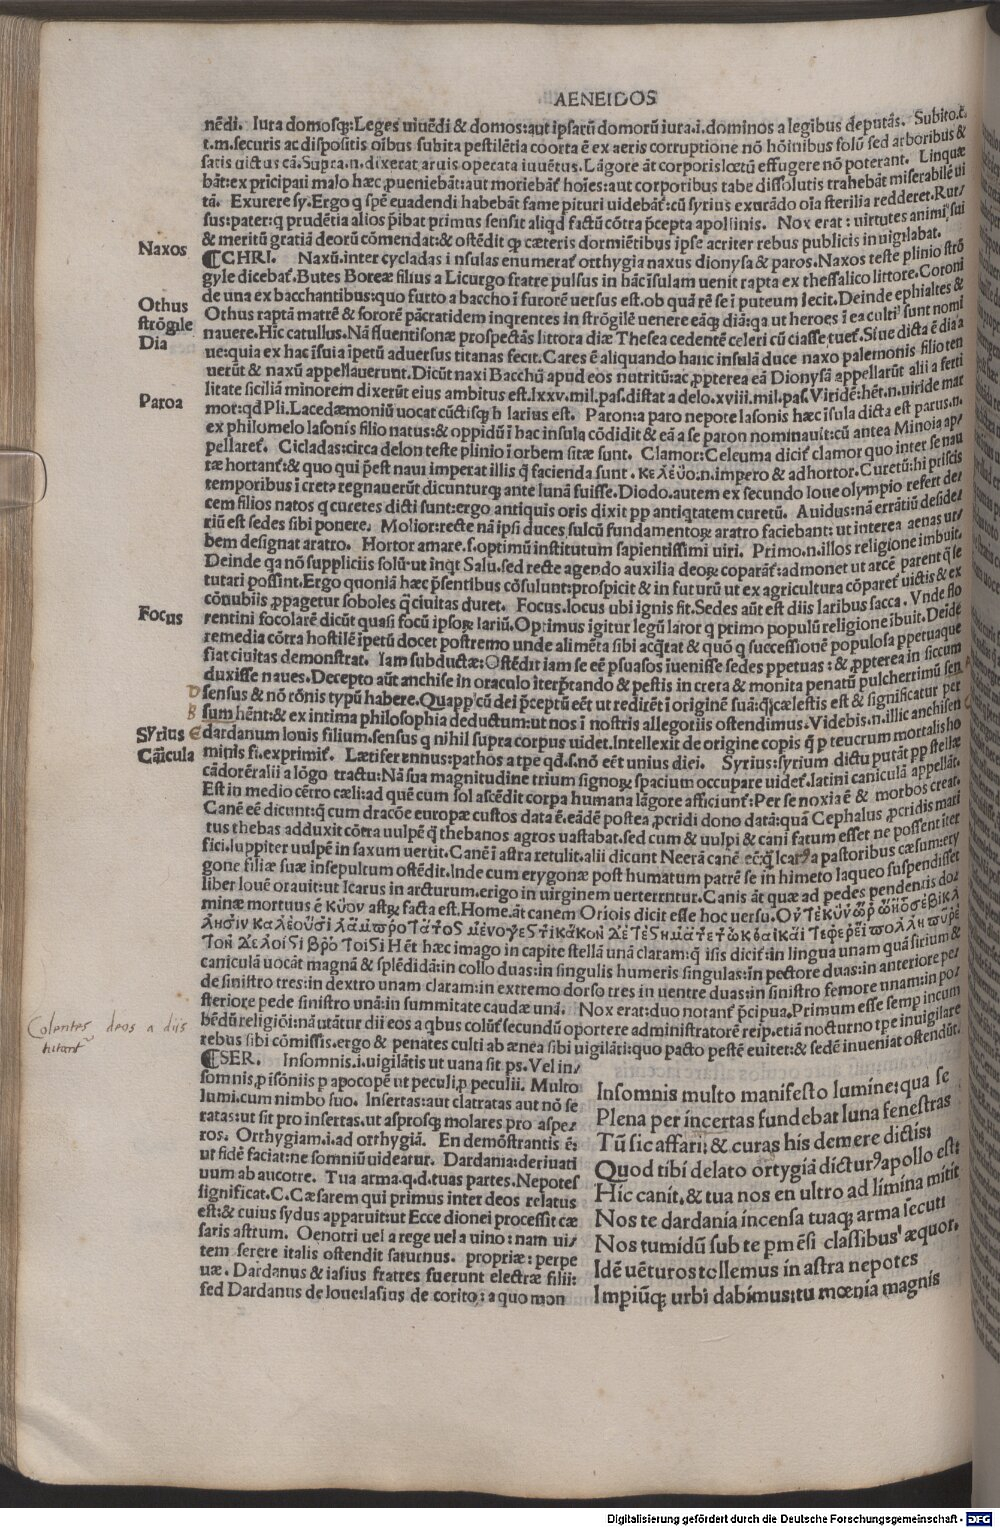 AENEIDOS
nēdi. Iura domosq;:Leges uiuēdi & domos:aut ipsarū domorū iura.i.dominos a legibus deputās. Subito.c.
t.m.securis ac dispositis oībus subita pestilētia coorta ē ex aeris corruptione nō hōinibus solū sed arboribus &
satis uictus cā.Supra.n.dixerat aruis operata iuuētus. Lāgore āt corporis lœtū effugere nō poterant. Linquæ
bāt:ex pricipali malo hæc ,pueniebāt:aut moriebāt hoīes:aut corporibus tabe dissolutis trahebāt miserabilē ui
tā. Exurere sy.Ergo q spē euadendi habebāt fame pituri uidebāt:cū syrius exurādo oīa sterilia redderet.Rur/
sus:pater:q prudētia alios p̄ibat primus sensit aliqd factū cōtra p̄cepta apollinis. Nox erat: uirtutes animi sui
& meritū gratiā deorū cōmendat:& ostēdit q cæteris dormiētibus ipse acriter rebus publicis inuigilabat.
Naxos
¶CHRI. Naxū.inter cycladas insulas enumerat orthygia naxus dionysa & paros.Naxos teste plinio strō
gyle dicebat.Butes Boreæ filius a Licurgo fratre pulsus in hāc īsulam uenit rapta ex thessalico littore.Coroni
de una ex bacchantibus:quo furto a baccho ī furorē uersus est.ob quā rē se ī puteum iecit.Deinde ephialtes &
Othus
Othus raptā matrē & sororē pācratidem inqrentes in strōgilē uenere eāq; diā:qa ut heroes ī ea culti sunt nomi
strōgile
nauere.Hic catullus.Nā fluentisonæ prospectās littora diæ Thesea cedentē celeri cū classe tuet.Siue dicta ē dia a
Dia
ue:quia ex hac īsula īpetū aduersus titanas fecit.Cares ē aliquando hanc insulā duce naxo palemonis filio ten
uerūt & naxū appellauerunt.Dicūt naxi Bacchū apud eos nutritū:ac ,ppterea eā Dionysā appellarūt alii a ferti
litate siciliā minorem dixerūt eius ambitus est.lxxv.mil.pas.distat a delo.xviii.mil.pas.Viridē:hēt.n.uiride mar
Paroa
mor:qd Pli.Lacedæmoniū uocat cūctisq; hilarius est. Paron:a paro nepote Iasonis hæc īsula dicta est parus.n.
ex philomelo Iasonis filio natus:& oppidū ī hac insula cōdidit & eā a se paron nominauit:cū antea Minoia ap/
pellaret. Cicladas:circa delon teste plinio ī orbem sitæ sunt. Clamor:Celeuma dicit clamor quo inter se nau
tæ hortant:& quo qui p̄est naui imperat illis q̄ facienda sunt . κελεύο.n.impero & adhortor.Curetū:hi priscis
temporibus ī creta regnauerūt dicunturq; ante lunā fuisse.Diodo.autem ex secundo Ioue olympio refert de/
cem filios natos q curetes dicti sunt:ergo antiquis oris dixit pp antiqtatem curetū. Auidus:nā errātiū deside/
riū est sedes sibi ponere. Molior:recte nā ipsi duces sulcū fundamentoꝝ aratro faciebant: ut interea aenas ur/
bem designat aratro. Hortor amare.s.optimū institutum sapientissimi uiri. Primo.n.illos religione imbuit.
Deinde qa nō suppliciis solū:ut inqt Salu.sed recte agendo auxilia deoꝝ coparāt:admonet ut arcē parent q̄ le
tutari possint.Ergo quoniā hæc p̄sentibus cōsulunt:prospicit & in futurū ut ex agricultura cōparet uictis & ex
cōnubiis ,ppagetur soboles q̄ ciuitas duret. Focus.locus ubi ignis fit.Sedes aūt est diis laribus sacca . Vnde flo
Focus
rentini focolarē dicūt quasi focū ipsoꝝ lariū.Optimus igitur legū lator q primo populū religione ībuit.Deidē
remedia cōtra hostilē īpetū docet postremo unde alimēta sibi acq̄rat & quō q successionē populosa ppetuaque
fiat ciuitas demonstrat. Iam subductæ:Ostēdit iam se eē p̄suasos īuenisse sedes ppetuas : & ,ppterea in siccum
duxisse naues.Decepto aūt anchise in oraculo īterp̄tando & pestis in creta & monita penatū pulcherrimū sen
sensus & nō rōnis typū habere.Quapp̄ cū dei p̄ceptū eēt ut redirēt ī originē suā:q̄ cælestis est & significatur per
sum hēnt:& ex intima philosophia deductum:ut nos ī nostris allegoriis ostendimus.Videbis.n.illic anchisen
Syrius
dardanum Iouis filium.sensus q nihil supra corpus uidet.Intellexit de origine copis q̄ p teucrum mortalis ho
Cāicula
minis fi.exprimit. Lætifer annus:pathos a tpe qd.s.nō eēt unius diei. Syrius:syrium dictu putāt pp stellæ
cādorē:alii a lōgo tractu:Nā sua magnitudine trium signoꝝ spacium occupare uidet.latini caniculā appellāt.
Est in medio cētro cæli:ad quē cum sol ascēdit corpa humana lāgore afficiunt:Per se noxia ē & morbos creat.
Canē eē dicunt:q̄ cum dracōe europæ custos data ē.eādē postea ,pcridi dono datā:quā Cephalus ,pcridis mari
tus thebas adduxit cōtra uulpē q̄ thebanos agros uastabat.sed cum & uulpi & cani fatum esset ne possent īter
fici.Iuppiter uulpē in saxum uertit.Canē ī astra retulit.alii dicunt Neerā canē eē:q̄ Icarꝰ a pastoribus cæsum:ery
gone filiæ suæ insepultum ostēdit.Inde cum erygonæ post humatum patrē se in himeto laqueo suspendisset
liber Iouē orauit:ut Icarus in arcturum.erigo in uirginem uerterrntur.Canis āt quæ ad pedes pendentis do/
minæ mortuus ē κύον astꝝ facta est.Home.āt canem Oriois dicit esse hoc uersu.
λησίν καλέουσι
Τον
βρο τοισι Hēt hæc imago in capite stellā unā claram:q̄ isis dicit:in lingua unam quā sirium &
caniculā uocāt magnā & splēdidā:in collo duas:in singulis humeris singulas:in pectore duas:in anteriore pe/
de sinistro tres:in dextro unam claram:in extremo dorso tres in uentre duas:in sinistro femore unam:in po/
steriore pede sinistro unā:in summitate caudæ unā. Nox erat:duo notant p̄cipua.Primum esse semp incum
Colentes deos a diis
bēdū religiōi:nā utātur dii eos a qbus colūt secundū oportere administratorē reip.etiā nocturno tpe inuigilare
rebus sibi cōmissis.ergo & penates culti ab ænea sibi uigilāti:quo pacto pestē euitet:& sedē inueniat ostendūt.
¶SER. Insomnis.i.uigilātis ut uana sit ps.Vel in/
somnis,p īsōniis p apocopē ut peculi,p peculii. Multo
lumi.cum nimbo suo. Insertas:aut clatratas aut nō se
ratas:ut sit pro insertas.ut asprosq; molares pro aspe/
ros. Orthygiam.i.ad orthygiā. En demōstrantis ē:
ut fidē faciat:ne somniū uideatur. Dardania:deriuati
uum ab aucotre. Tua arma.q.d.tuas partes.Nepotes
significat.C.Cæsarem qui primus inter deos relatus
est:& cuius sydus apparuit:ut Ecce dionei processit cæ
saris astrum. Oenotri uel a rege uel a uino : nam ui/
tem serere italis ostendit saturnus. propriæ: perpe
uæ. Dardanus & iasius fratres fuerunt electræ filii:
sed Dardanus de Ioue:Iasius de corito: a quo mon
Insomnis multo manifesto lumine:qua se
Plena per incertas fundebat luna fenestras
Tū sic affari: & curas his demere dictis:
Quod tibi delato ortygiā dicturꝰ apollo est:
Hic canit.& tua nos en ultro ad limina mitit
Nos te dardania incensa tuaq; arma secuti
Nos tumidū sub te pmēsi classibus æquor.
Idē uēturos tollemus in astra nepotes
Impiūq; urbi dabimus:tu mœnia magnis
Digitalisierung gefördert durch die Deutsche Forschungsgemeinschaft - DFG